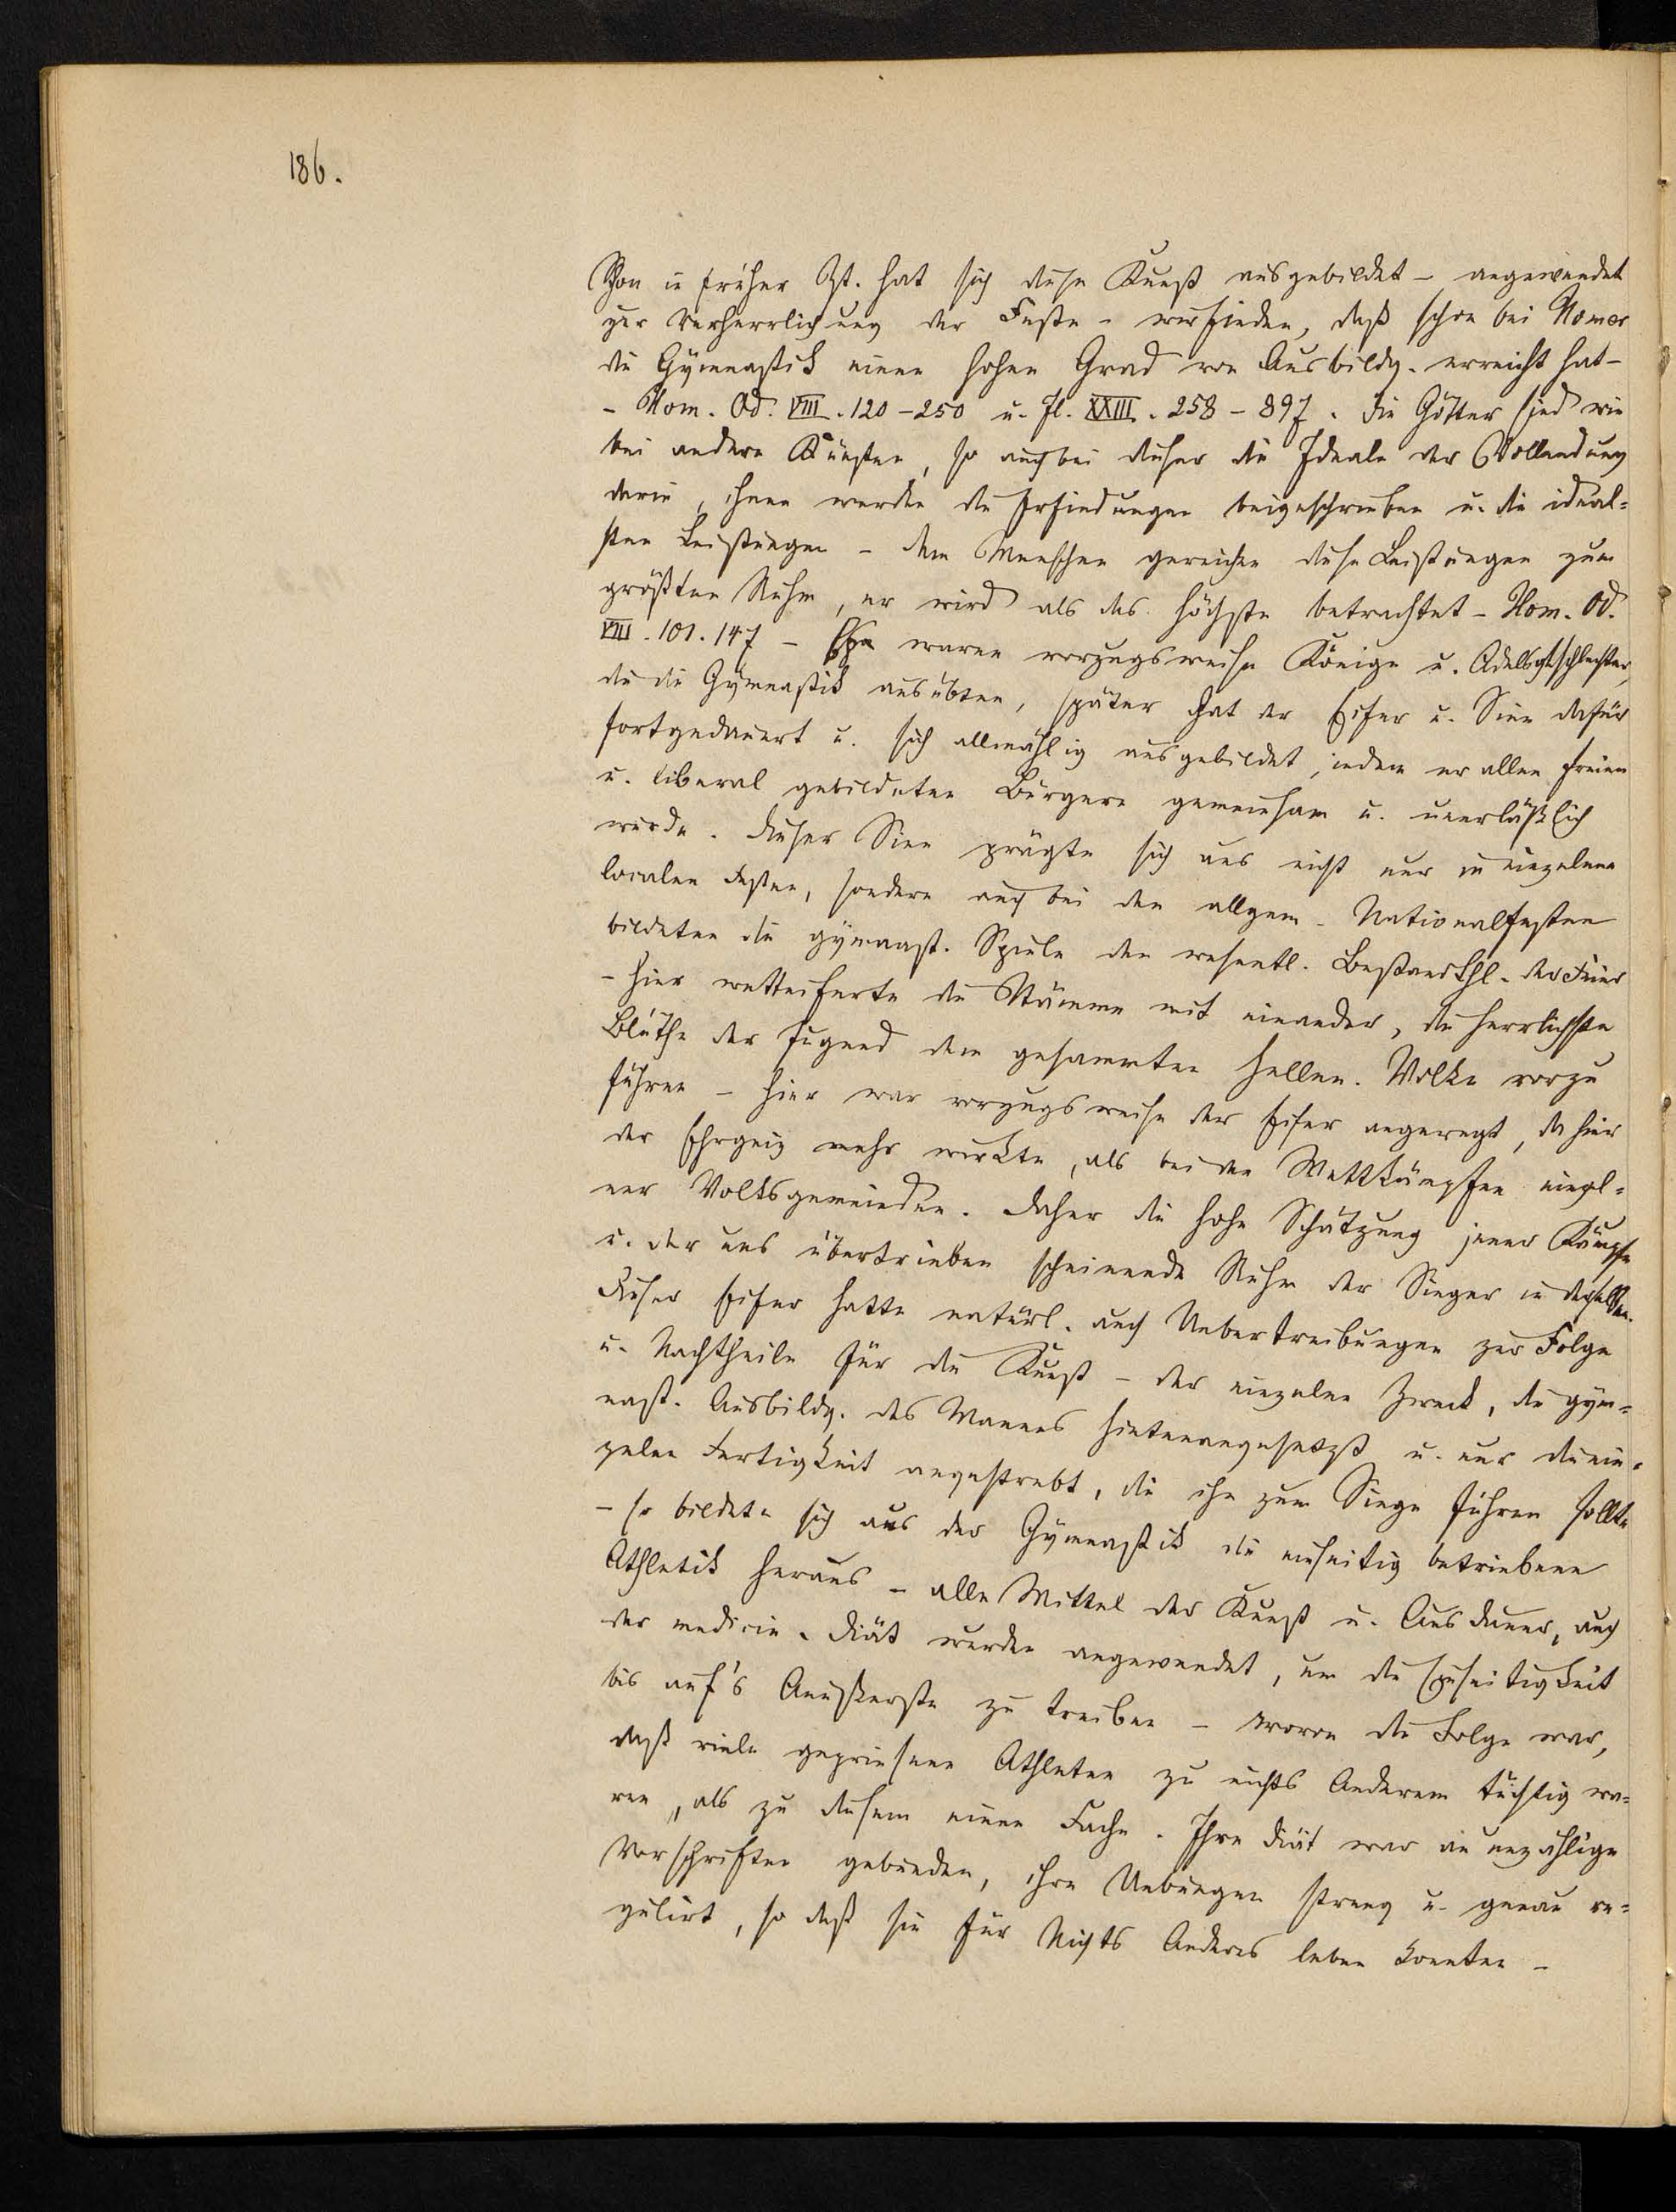 186.
Schon in früher Zt. hat sich diese Kunst ausgebildet – angewendet
zur Verherrlichung der Feste – wir finden, daß schon bei Homer
die Gymnastik einen hohen Grad von Ausbildg. erreicht hat –
– Hom. Od. VIII. 120–250 u. Il. XXIII. 258–897. Die Götter sind wie
bei andern Künsten, so auch bei dieser die Ideale der Vollendung
darin, ihnen werden die Erfindungen beigeschrieben u. die ideal-
sten Leistungen – dem Menschen gereichen diese Leistungen zum
größten Ruhm, er wird als das höchste betrachtet – Hom. Od.
VIII. 101. 147 – waren vorzugsweise Könige u. Adelsgeschlechter,
die die Gymnastik ausübten, später hat der Eifer u. Sinn dafür
fortgedauert u. sich allmählig ausgebildet, indem er allen freien
u. liberal gebildeten Bürgern gemeinsam u. unerläßlich
wurde. Dieser Sinn prägte sich aus nicht nur in einzelnen
localen Festen, sondern auch bei den allgem. Nationalfesten
bildeten die gymnast. Spiele den wesentl. Bestandthl. der Feier
– hier wetteiferte die Stämme mit einander, die herrlichste
Blüthe der Jugend dem gesammten hellen. Volke vorzu
führen – hier war vorzugsweise der Eifer angeregt, da hier
der Ehrgeiz mehr wirkte, als bei den Wettkämpfen einzel-
ner Volksgemeinden. Daher die hohe Schätzung jener Kämpfe
u. der uns übertrieben scheinende Ruhm der Sieger in denselben.
Dieser Eifer hatte natürl. auch Uebertreibungen zur Folge
u. Nachtheile für die Kunst – der einzelne Zweck, die gym-
nast. Ausbildg. des Mannes hintenangesetzt u. nur die ein-
zelne Fertigkeit angestrebt, die ihn zum Siege führen sollte
– so bildete sich aus der Gymnastik die einseitig betriebene
Athletik heraus – alle Mittel der Kunst u. Ausdauer, auch
der medicin. Diät wurden angewendet, um die Einseitigkeit
bis auf's Aeußerste zu treiben – wovon die Folge war,
daß viele gepriesene Athleten zu nichts Anderem tüchtig wa-
ren, als zu diesem einen Fache. Ihre Diät war an unzählige
Vorschriften gebunden, ihre Uebungen streng u. genau re-
gulirt, so daß sie für Nichts Anderes leben konnten –